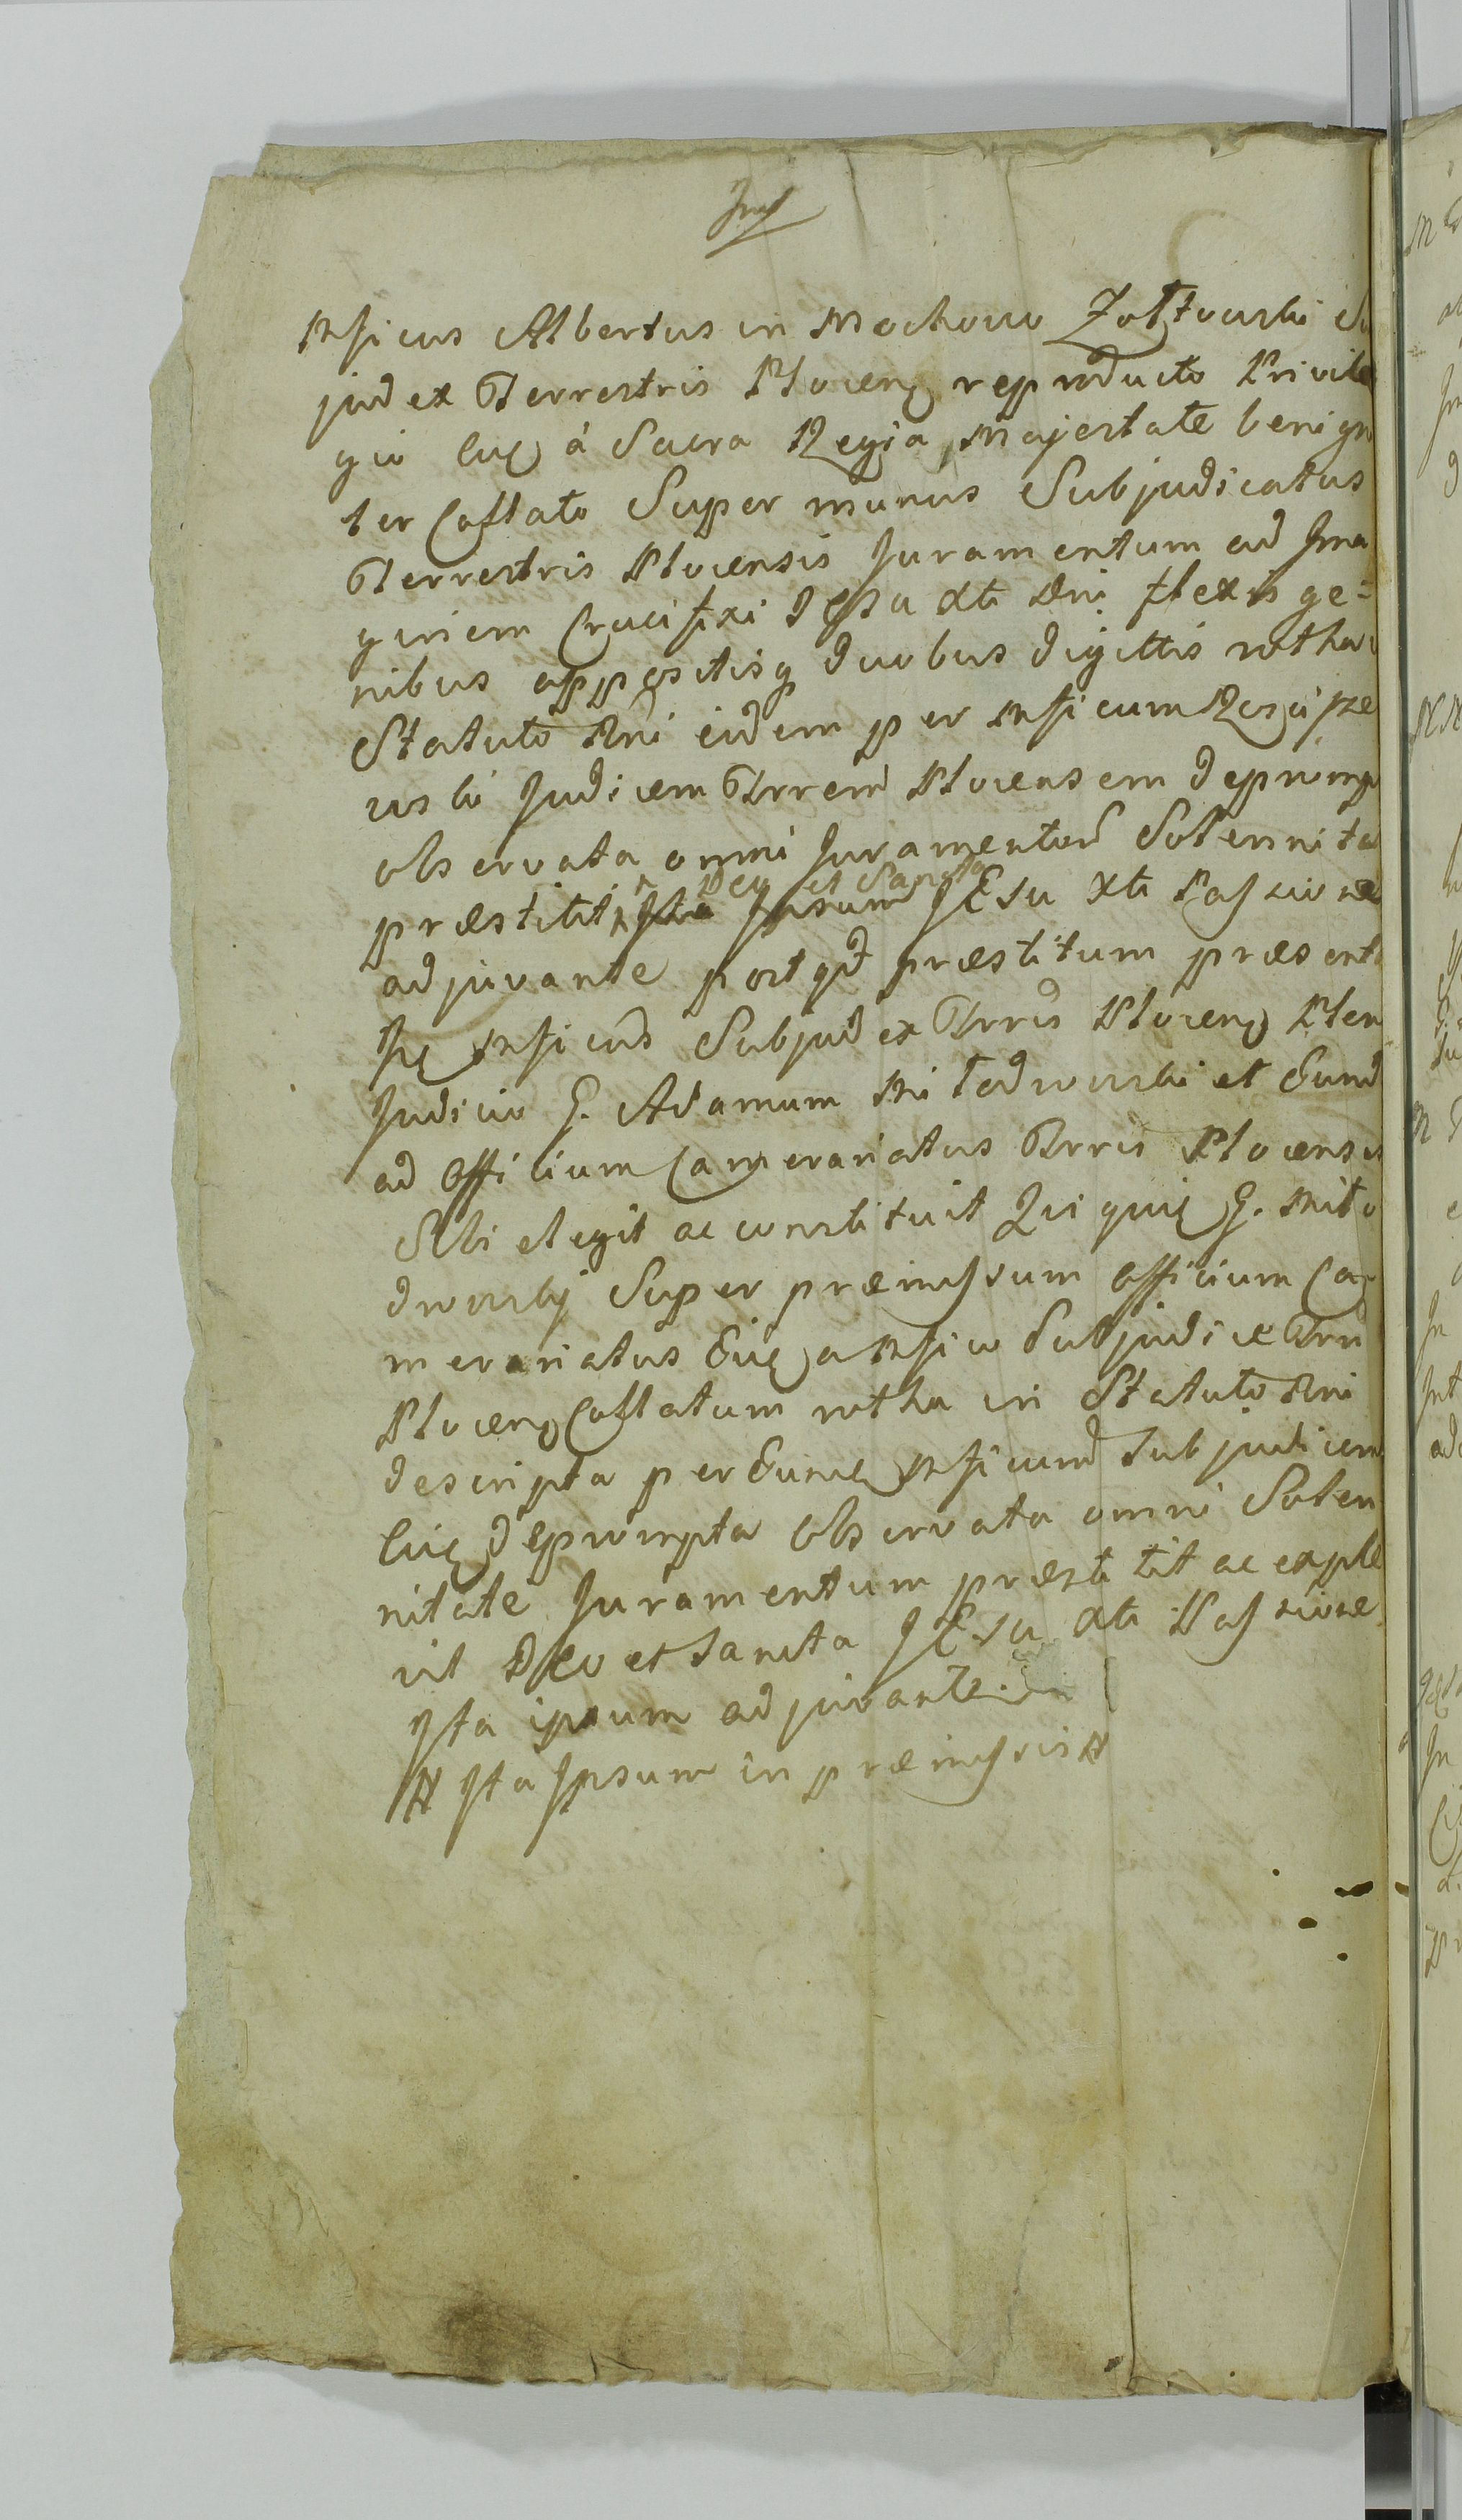 Mficus Albertus in Mochowo Zołtowski Su
judex Terrestris Plocens reproducto Privile
gio Eius à Sacra Regia Majestate benign
ter Collato Super munus Subjudicatus
Terrestris Plocensis Juramentum ad Ima
ginem Crucifixi IESu Xti Dni flexis ge=
nibus appositisq duobus digittis rotha
Statuto Rni eidem per Mficum
wski Judicem Trrem Plocensem depromp
observata omni Juramentor Solennita
Deo et Sancta
præstitit Ita Ipsum IESu Xti Passione
adjuvante post qd præstitum præsent
Mficus Subjudex Trris Plocens Plen
Judicio G. Adamum Mitodrowski et Eund
ad Officium Camerariatus Trris Plocensis
Sibi elegit ac constituit Qui quid G. Mito
drowskj Super præmissum Officium Ca
merariatus Eius a Mfico Subjudice Trri
Plocens Collatum rotha in Statuto Rni
descripta per Eund Mficum Subjudicem
Eius deprompta Observata omni Solen
nitate Juramentum præstitit ac exple
vit Deo et Sancta IESu Xti Passione
Ita ipsum adjuvante.
# Ita Ipsum in præmissis #